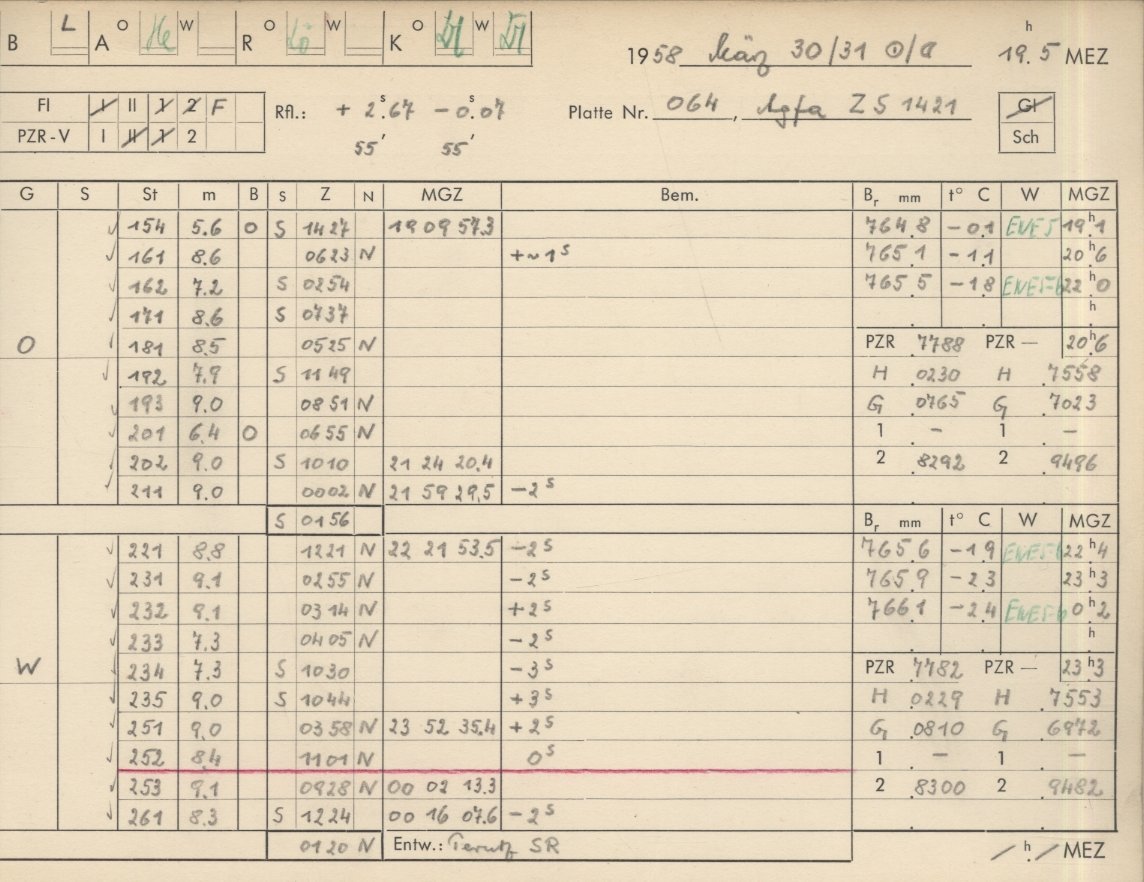 B L A O He W R O Lö W K O W
1958 März 30/31 ☉/☾ 19.5 h MEZ
FI I II 1 2 F
PZR-V I II 1 2
Rfl.: + 2.67 s − 0.07 s
55' 55'
Platte Nr. 064, Agfa ZS 1421
GI
Sch
G S St m B S Z N MGZ Bem. Br mm t° C W MGZ
154 5.6 O S 1427 19 09 57.3 764.8 −0.1 ENE 5 19 h 1
161 8.6 0623 N +~1 s 765.1 −1.1 20 h 6
162 7.2 S 0254 765.5 −1.8 ENE 5-6 22 h 0
171 8.6 S 0737 h
O 181 8.5 0525 N PZR .7788 PZR — 20 h 6
192 7.9 S 1149 H .0230 H .7558
193 9.0 0851 N G .0765 G .7023
201 6.4 O 0655 N 1 . – 1 . –
202 9.0 S 1010 21 24 20.4 2 .8292 2 .9496
211 9.0 0002 N 21 59 29.5 −2 s
S 0156 Br mm t° C W MGZ
221 8.8 1221 N 22 21 53.5 −2 s 765.6 −1.9 ENE 5-6 22 h 4
231 9.1 0255 N −2 s 765.9 −2.3 23 h 3
232 9.1 0314 N +2 s 766.1 −2.4 ENE 5-6 0 h 2
233 7.3 0405 N −2 s h
W 234 7.3 S 1030 −3 s PZR .7782 PZR — 23 h 3
235 9.0 S 1044 +3 s H .0229 H .7553
251 9.0 0358 N 23 52 35.4 +2 s G .0810 G .6972
252 8.4 1101 N 0 s 1 . – 1 . –
253 9.1 0928 N 00 02 13.3 2 .8300 2 .9482
261 8.3 S 1224 00 16 07.6 −2 s
0120 N Entw.: Perutz SR / h / MEZ